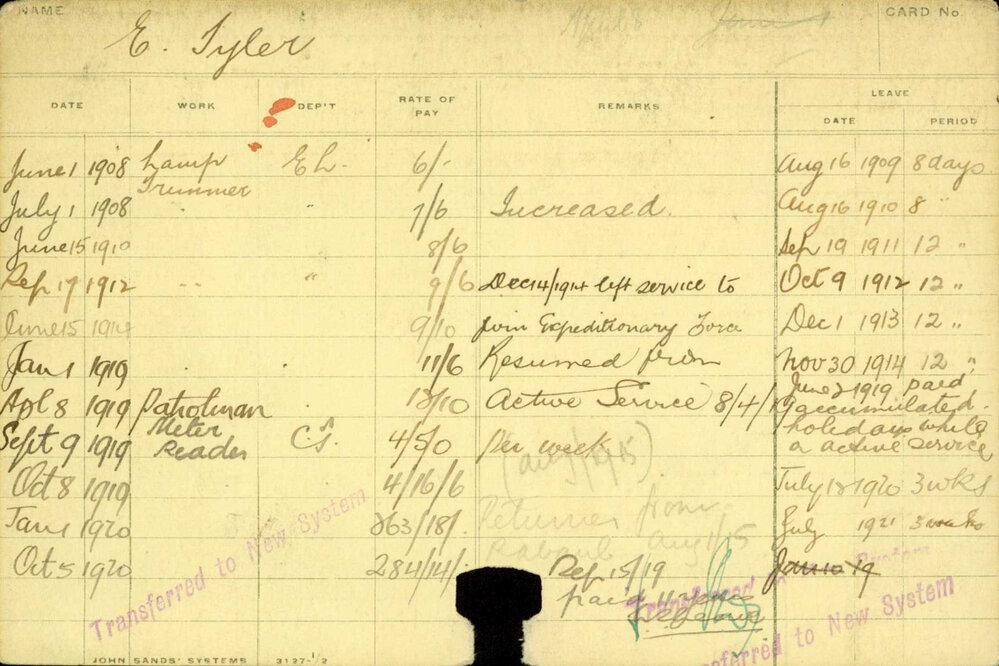 NAME
CARD No.
E. Tyler
DATE WORK DEP'T RATE OF PAY REMARKS LEAVE
DATE PERIOD
June 1 1908 Lamp E L. 6/- Aug 16 1909 8 days
Trimmer
July 1 1908 " 7/6 Increased. Aug 16 1910 8 "
June 15 1910 8/6 Sep 19 1911 12 "
Sep 17 1912 " " 9/6 Dec 14/1914 left service to Oct 9 1912 12 "
June 15 1914 9/10 join Expeditionary Force Dec 1 1913 12 "
Jan 1 1919 11/6 Resumed from Nov 30 1914 12 "
Apl 8 1919 Patrolman 13/10 Active Service 8/4/19 June 2 1919 paid
accumulated
holidays while
a active service
Sept 9 1919 Meter Reader C S. 4/5/0 Per week
(Aug 1/1915)
Oct 8 1919 4/16/6 July 12 1920 3 wks
Jan 1 1920 263/18/- Returned from July 1921 3 weeks
Rabaul Aug 1/15
Oct 5 1920 284/14/- Sep 15/19
paid
Transferred to New System
Transferred to New System
JOHN SANDS' SYSTEMS 3127-1/2